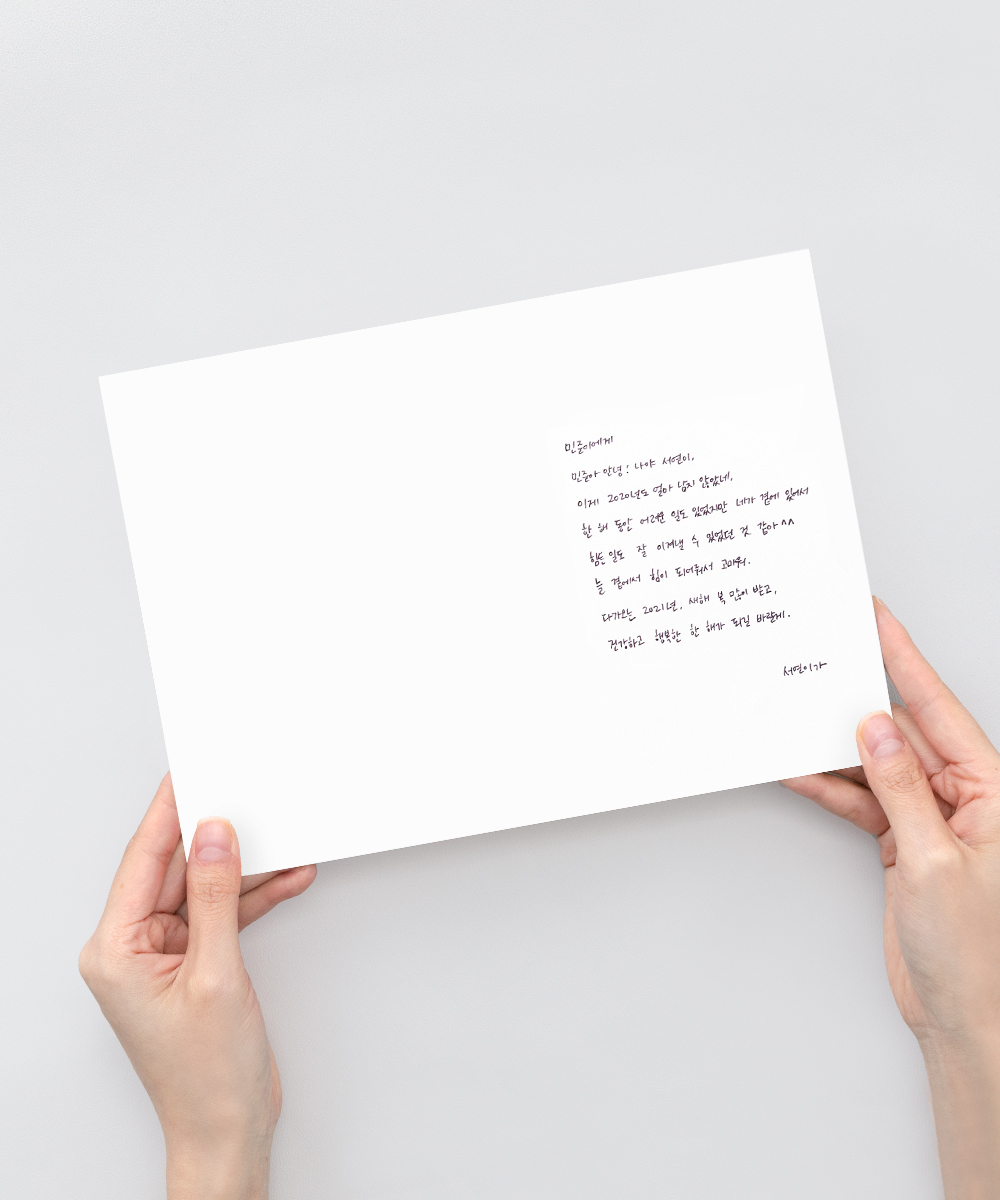 민준이에게
민준아 안녕! 나야 서연이.
이제 2020년도 얼마 남지 않았네.
한 해 동안 어려운 일도 있었지만 네가 곁에 있어서
힘든 일도 잘 이겨낼 수 있었던 것 같아^^
늘 곁에서 힘이 되어줘서 고마워.
다가오는 2021년, 새해 복 많이 받고,
건강하고 행복한 한 해가 되길 바랄게.
서연이가